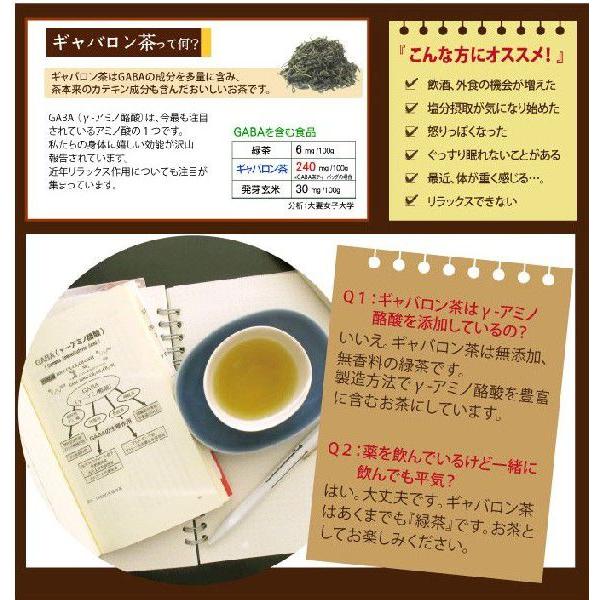 ギャバロン茶って何?
ギャバロン茶はGABAの成分を多量に含み、
茶本来のカテキン成分も含んだおいしいお茶です。
GABA(γ-アミノ酪酸)は、今最も注目
されているアミノ酸の1つです。
私たちの身体に嬉しい効能が沢山
報告されています。
近年リラックス作用についても注目が
集まっています。
GABAを含む食品
緑茶 6 mg/100g
ギャバロン茶 240 mg/100g
発芽玄米 30 mg/100g
分析:大妻女子大学
『こんな方にオススメ!』
飲酒、外食の機会が増えた
塩分摂取が気になり始めた
怒りっぽくなった
ぐっすり眠れないことがある
最近、体が重く感じる…。
リラックスできない
GABA(γ-アミノ酪酸)
GABA
Q1:ギャバロン茶はγ-アミノ
酪酸を添加しているの?
いいえ。ギャバロン茶は無添加、
無香料の緑茶です。
製造方法でγ-アミノ酪酸を豊富
に含むお茶にしています。
Q2:薬を飲んでいるけど一緒に
飲んでも平気?
はい。大丈夫です。ギャバロン茶
はあくまでも『緑茶』です。お茶と
してお楽しみください。